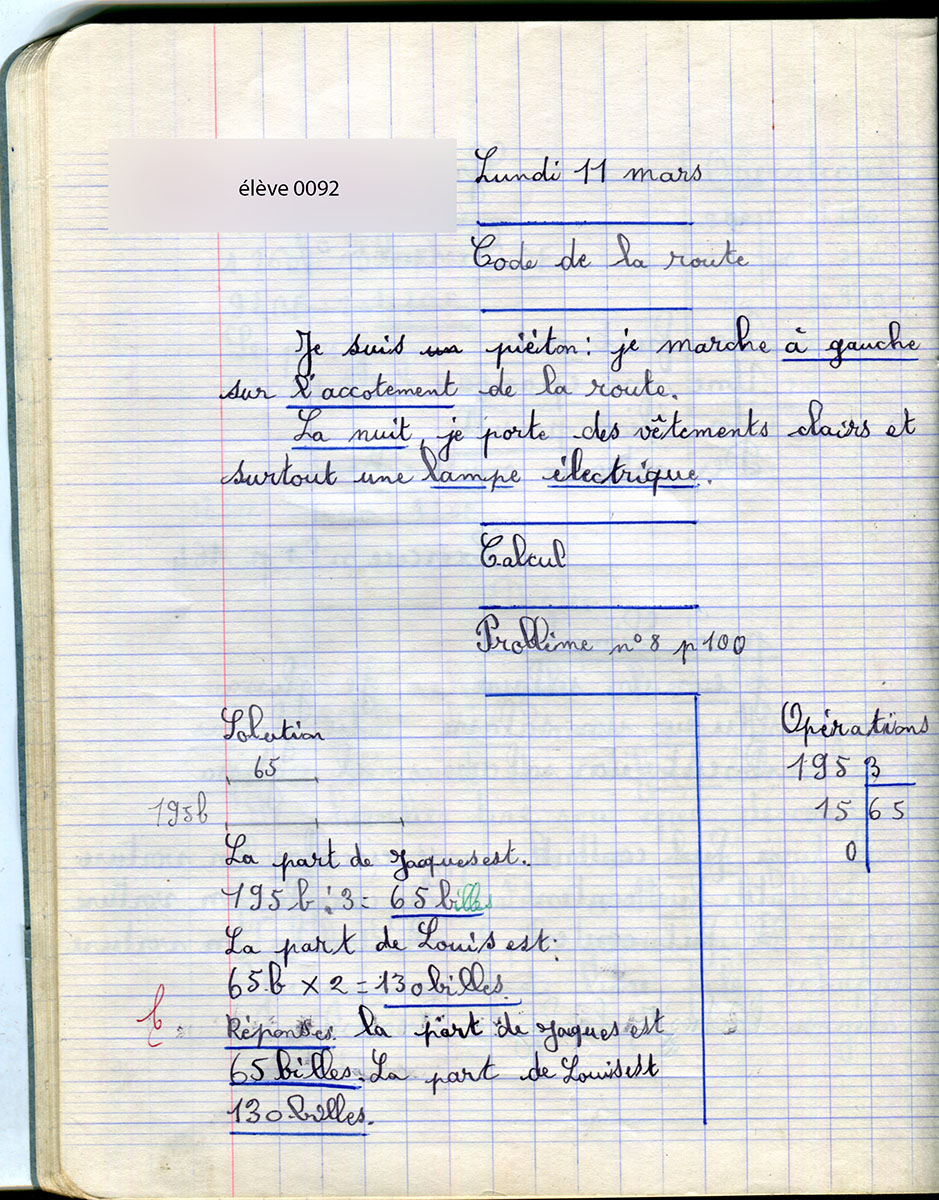 élève 0092
Lundi 11 mars
Code de la route
Je suis un piéton : je marche à gauche
sur l'accotement de la route.
La nuit, je porte des vêtements clairs et
surtout une lampe électrique.
Calcul
Problème n° 8 p 100
Solution
65
195b
La part de Jaques est.
195 b : 3 = 65 billes
La part de Louis est :
65b × 2 = 130 billes.
Réponses. la part de Jaques est
65 billes. La part de Louis est
130 billes.
Opérations
195 3
15 65
0